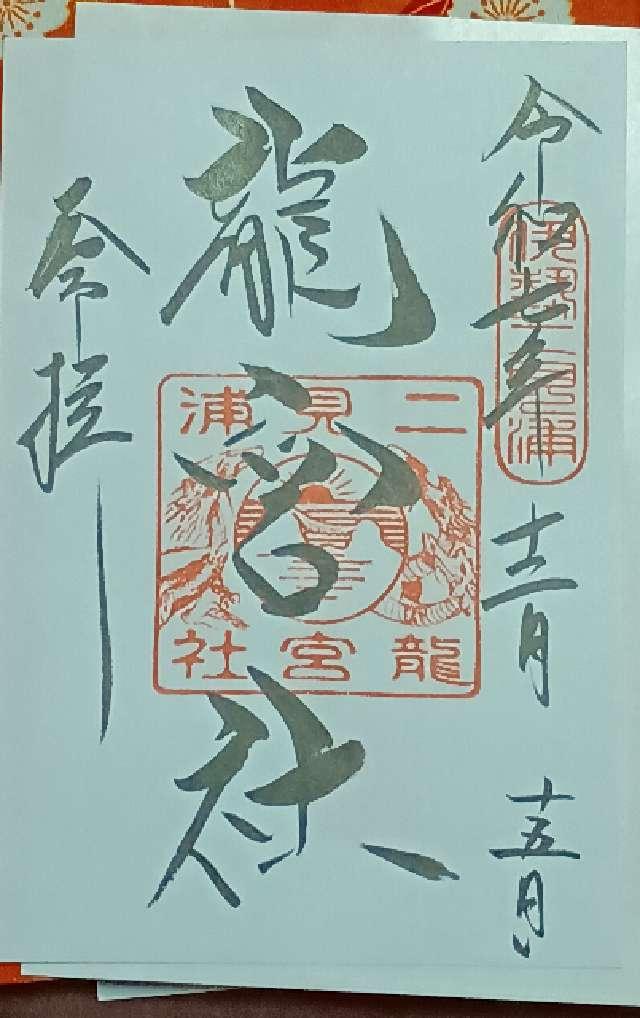 令和七年十二月十五日
伊勢二見浦
龍宮社
二見浦
龍宮社
奉拝